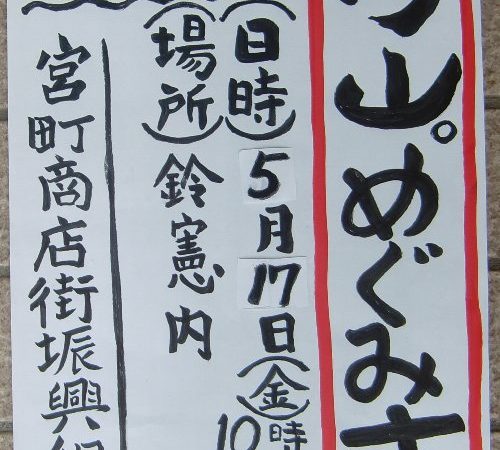 山。めぐみ
(日時)5月17日(金)10時
(場所)鈴憲内
宮町商店街振興組